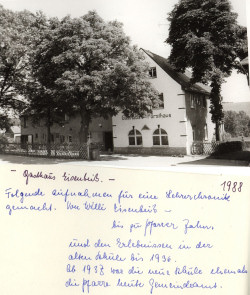 - Gasthaus Eisenbuß. -
1988
Folgende Aufnahmen für eine Lehrerchronik
gemacht. Von Willi Eisenbuß -
bis zu Pfarrer Zahn,
und den Erlebnissen in der
alten Schule bis 1936.
Ab 1937 war die neue Schule ehemals
die Pfarre heute Gemeindeamt.